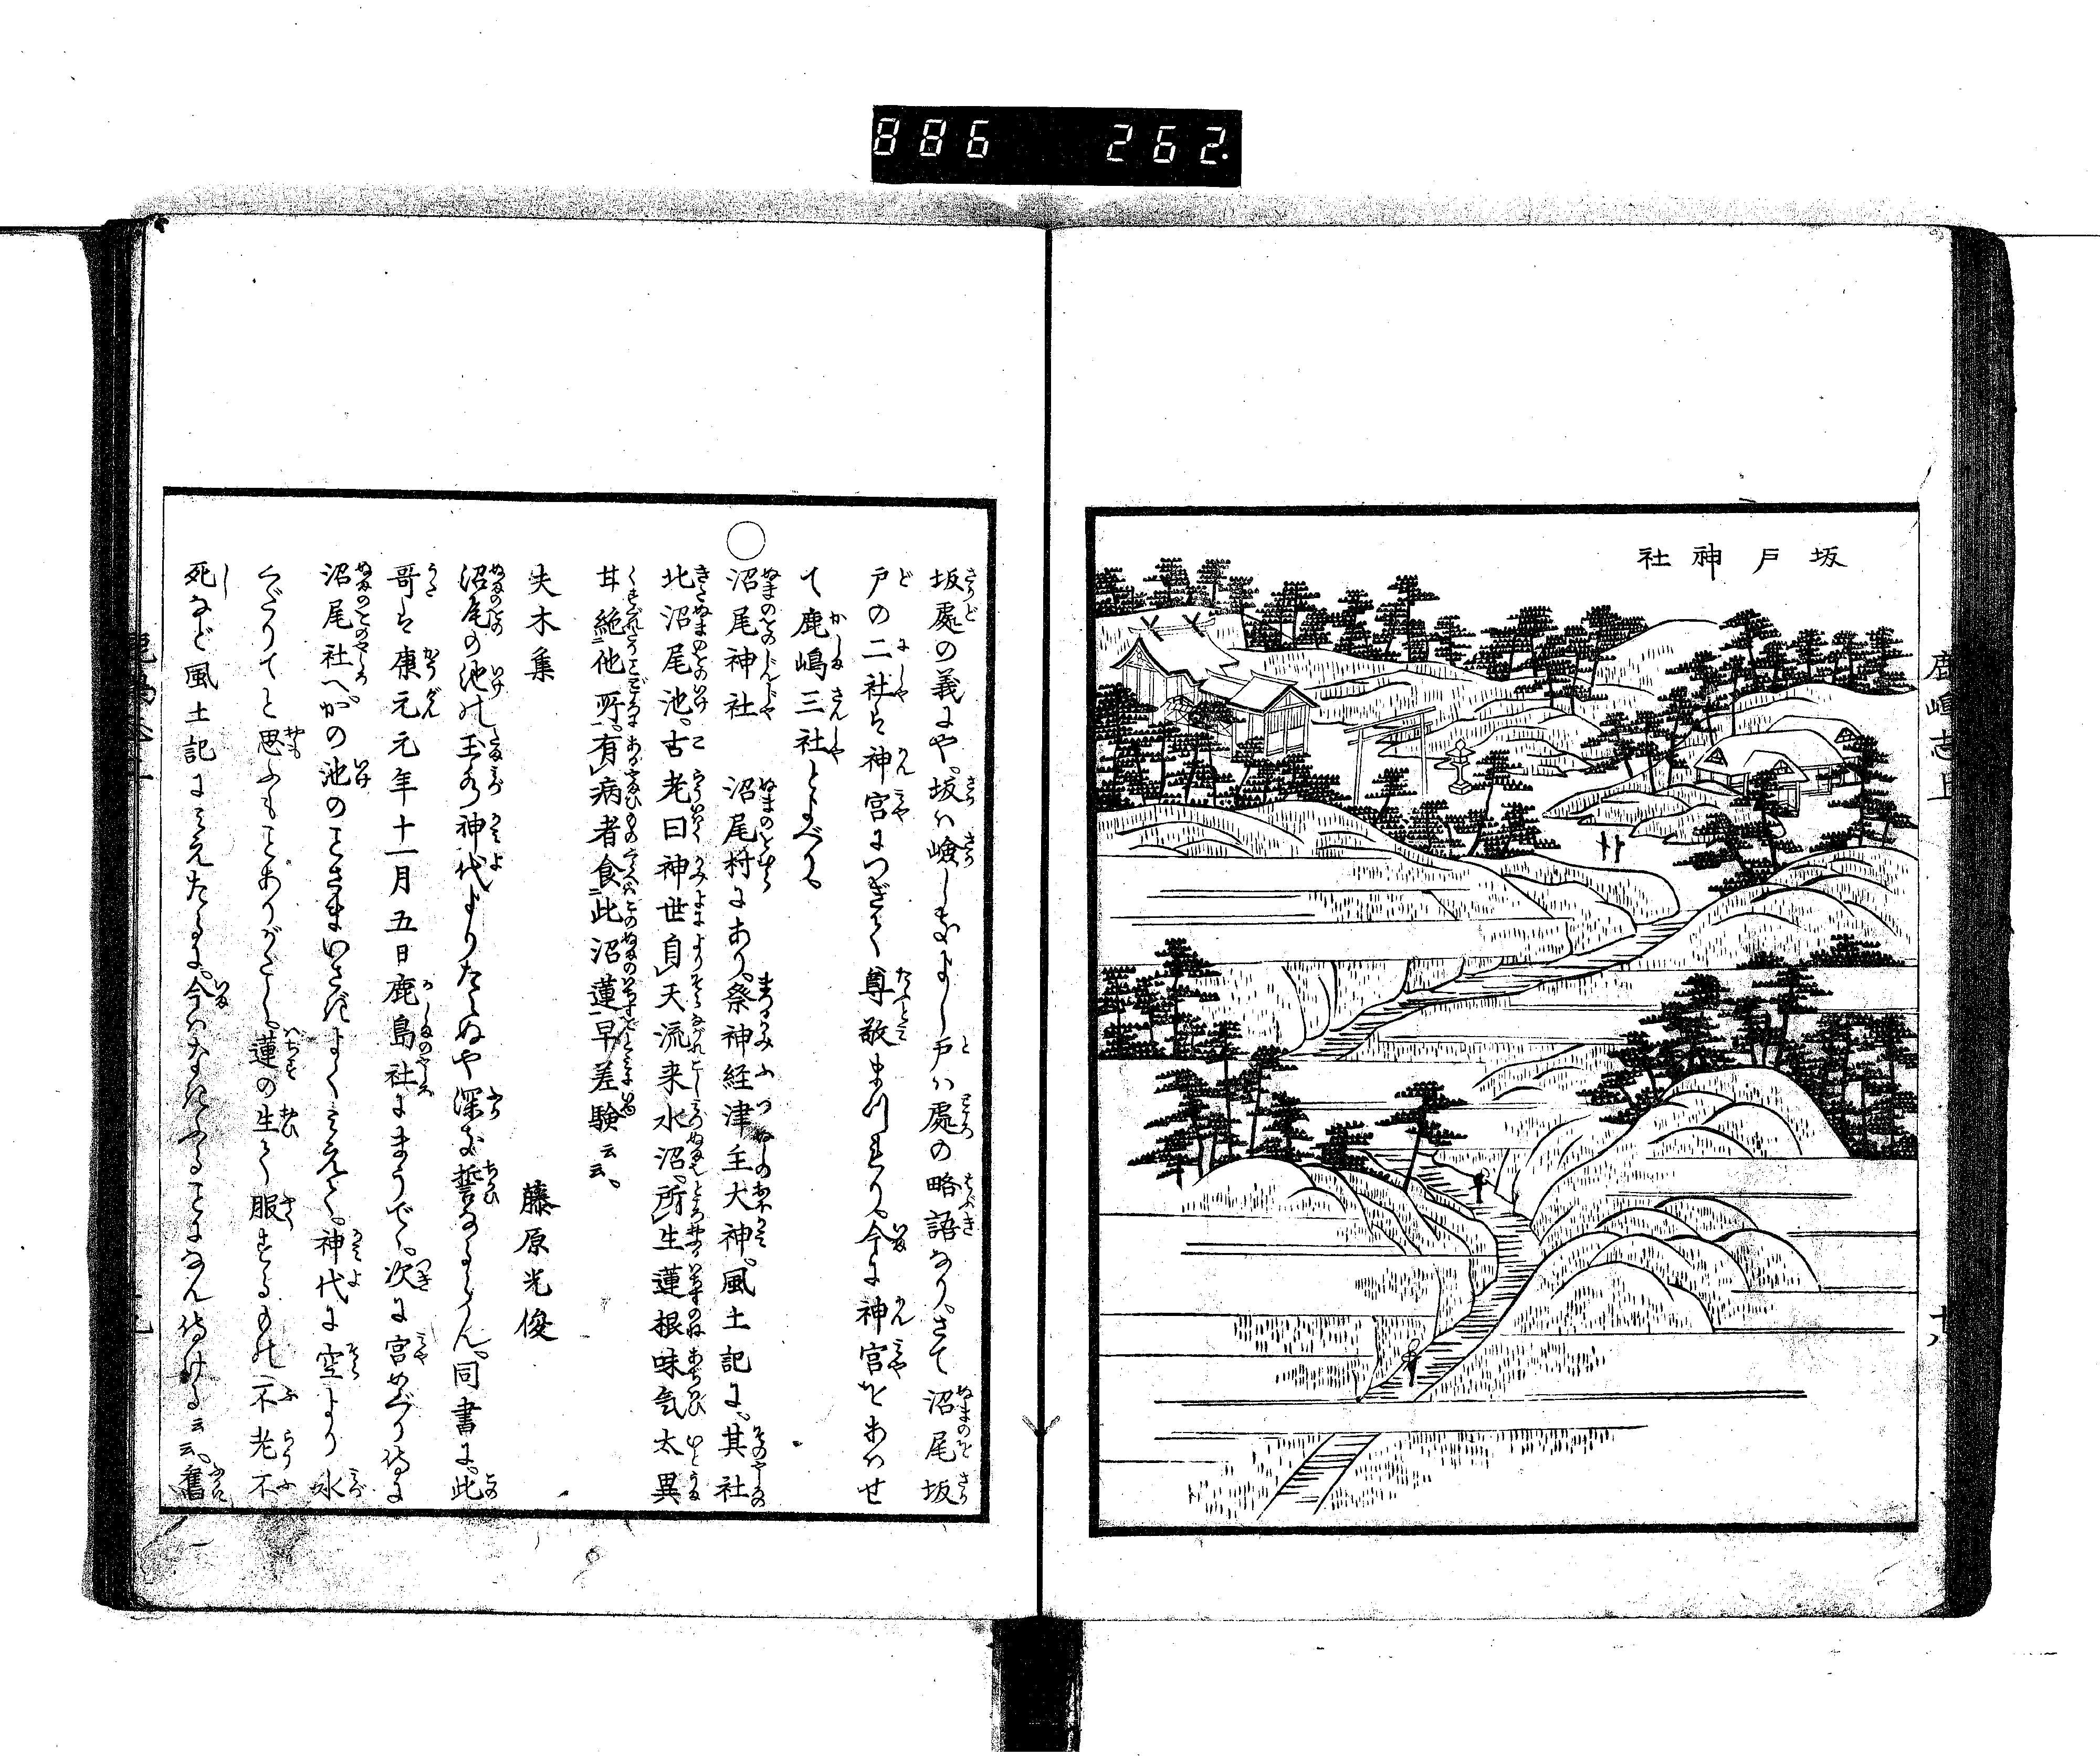 886 262.
坂戸神社
鹿嶋志上
十八
坂處の義にや。坂ハ嶮しきなよし戸ハ處の略語なり。さて沼尾坂
戸の二社は神宮につぎて尊敬まつれり。今に神宮とあハせ
て鹿嶋三社とよべり。
○沼尾神社 沼尾村にあり。祭神経津主大神。風土記に。其社
北沼尾池。古老曰神世自天流来水沼。所生蓮根味気太異
甘絶他所。有病者食此沼蓮早差験云云。
夫木集 藤原光俊
沼尾の池の玉水神代よりたえぬや深き誓なるらん。同書に。此
哥は康元元年十一月五日鹿島社にまうでゝ。次に宮めぐり侍に
沼尾社へ。かの池のことさまいさぎよくみえて。神代に空より水
くだりてと思ふもことありがたし。蓮の生て服するもの不老不
死など風土記にみえたるに。今ハなにふることになん侍ける云云。舊